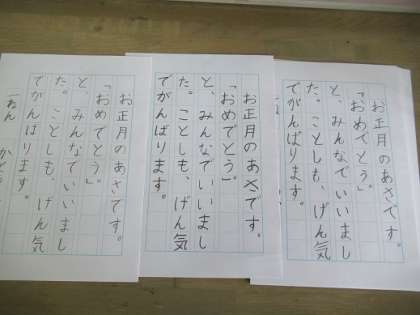 お正月のあさです。
「おめでとう」。
と、みんなでいいまし
た。ことしも、げん気
でがんばります。
お正月のあさです。
「おめでとう」
と、みんなでいいまし
た。ことしも、げん気
でがんばります。
お正月のあさです。
「おめでとう」。
と、みんなでいいまし
た。ことしも、げん気
でがんばります。
一ねん